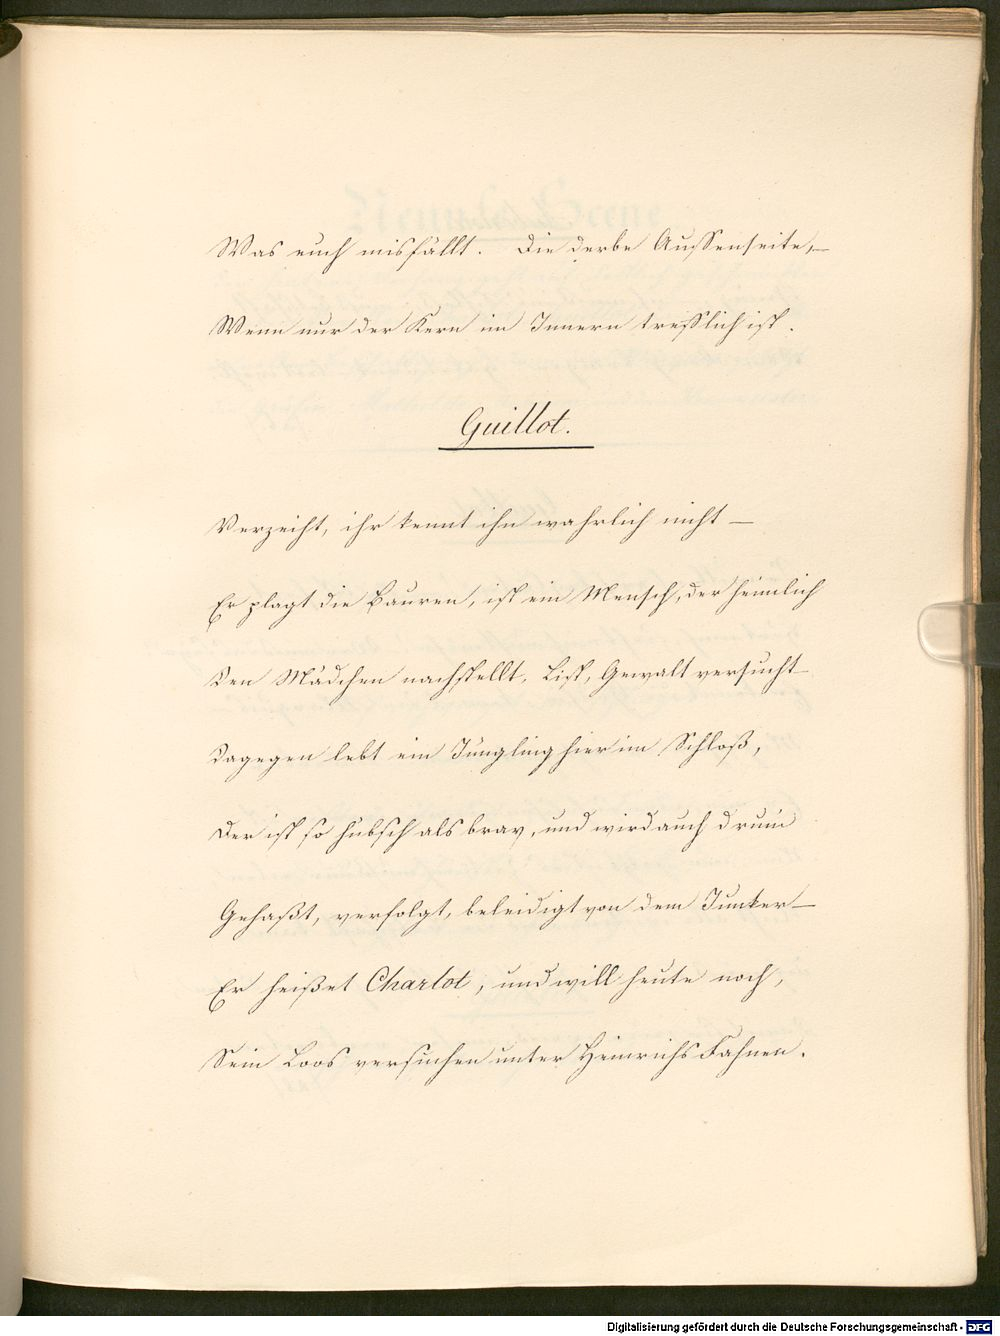 Was euch misfällt. Die derbe Aussenseite,—
Wenn nur der Kern im Innern trefflich ist.
Guillot.
Verzeiht, ihr kennt ihn wahrlich nicht —
Er plagt die Bauren, ist ein Mensch, der heimlich
Den Mädchen nachstellt, List, Gewalt versucht —
Dagegen lebt ein Jüngling hier im Schloß,
Der ist so hübsch als brav, und wird auch drum
Gehaßt, verfolgt, beleidigt von dem Junker —
Er heißet Charlot, und will heute noch,
Sein Loos versuchen unter Heinrichs Fahnen.
Digitalisierung gefördert durch die Deutsche Forschungsgemeinschaft - DFG